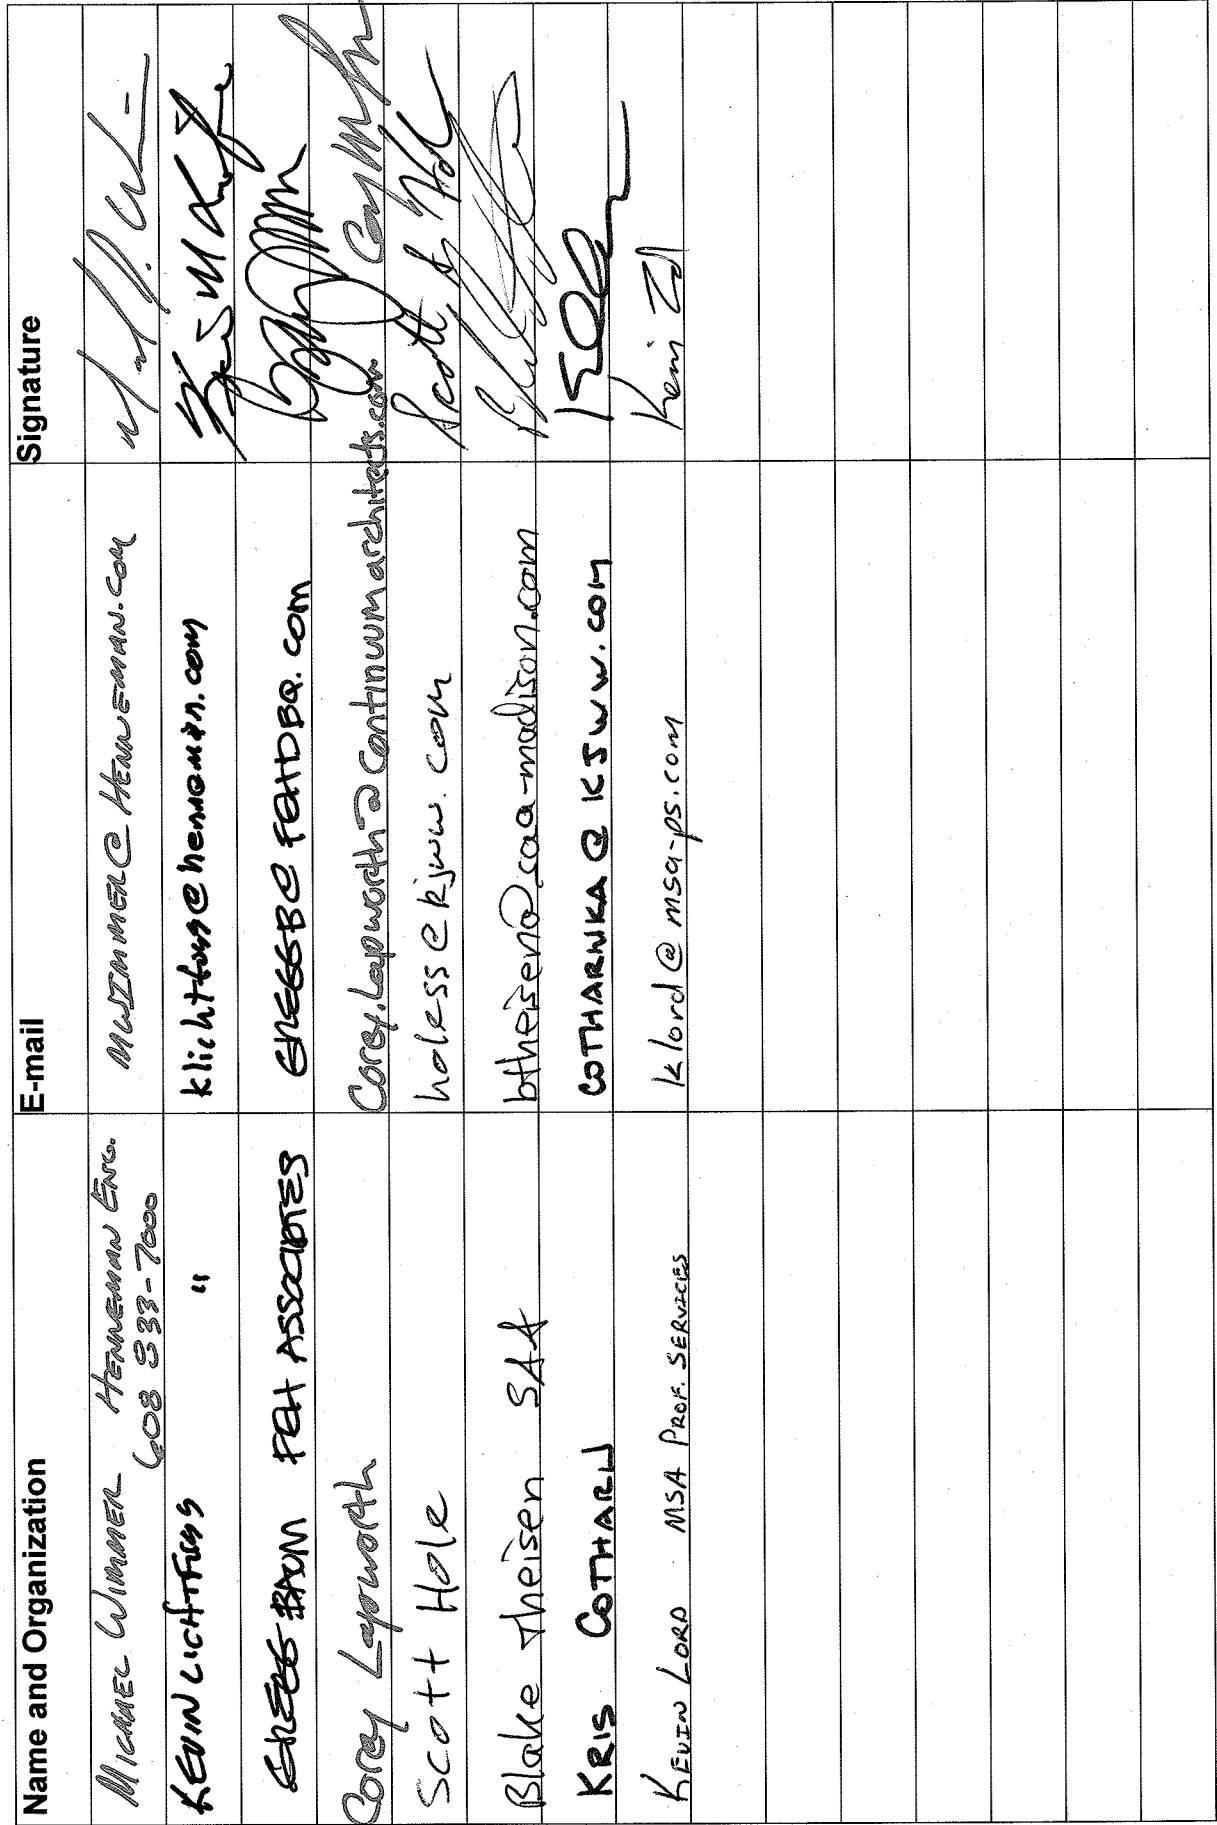 Name and Organization E-mail Signature
MICHAEL WIMMER HENNEMAN ENG. MWIMMER@HENNEMAN.COM
608 833-7000
KEVIN LICHTFUSS " klichtfuss@henneman.com
GREGG BAUM FEH ASSOCIATES GREGGB@FEHDBQ.COM
Corey Lapworth Corey.Lapworth@continuumarchitects.com
Scott Hole holess@kjww.com Scott S Hole
Blake Theisen SAA btheisen@saa-madison.com
KRIS COTHARN COTHARNKA@KJWW.COM
KEVIN LORD MSA PROF. SERVICES klord@msa-ps.com